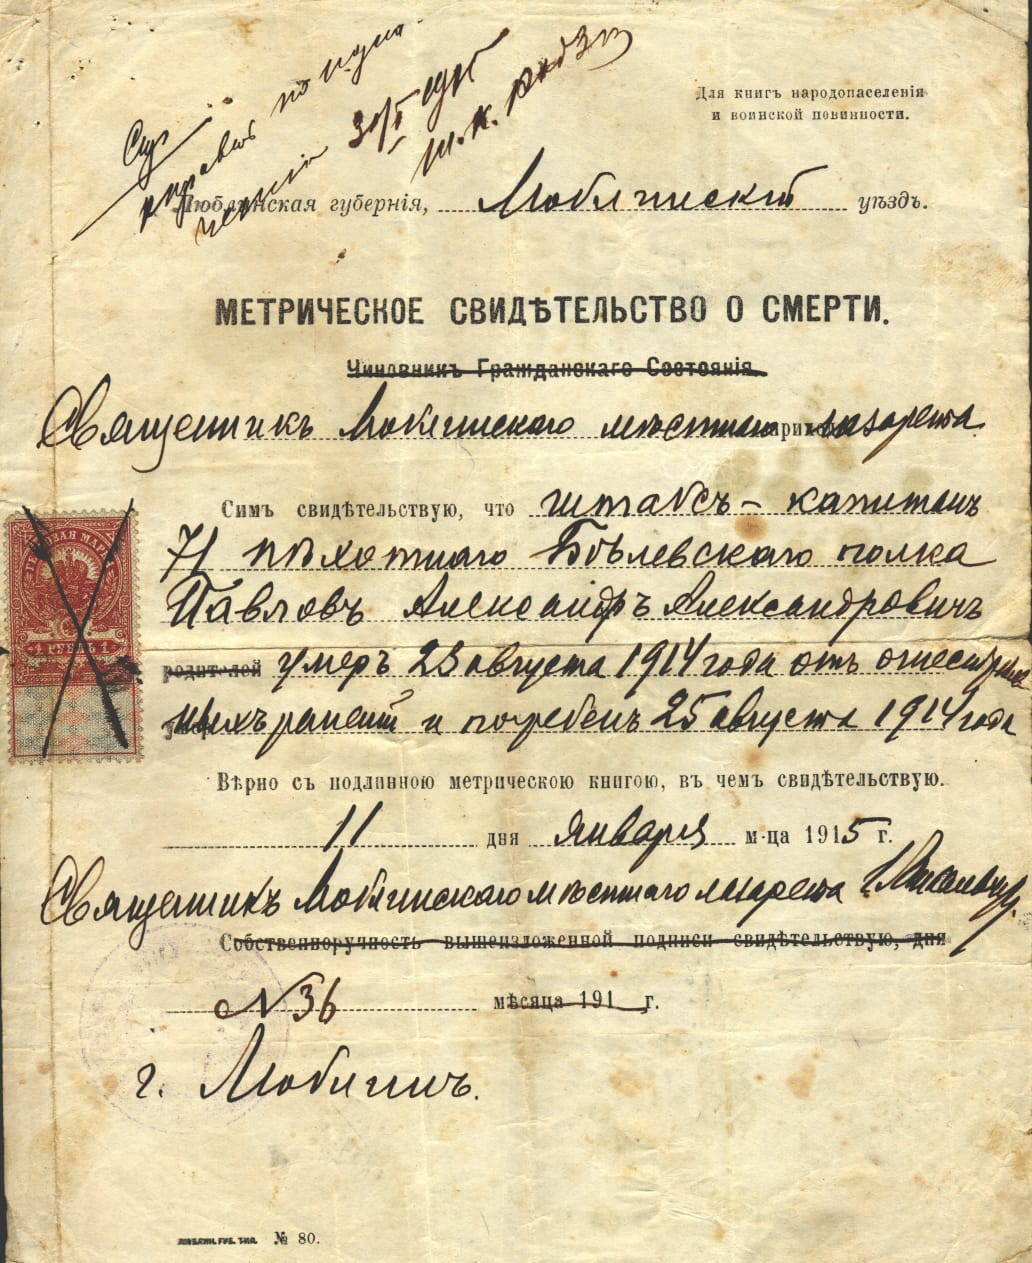 по
Для книгъ народонаселенія
и воинской повинности.
Люблинская губернія, Люблинскій уѣздъ.
МЕТРИЧЕСКОЕ СВИДѢТЕЛЬСТВО О СМЕРТИ.
Чиновникъ Гражданскаго Состоянія
Священникъ Люблинскаго мѣстнаго лазарета
Симъ свидѣтельствую, что штабсъ-капитанъ
71 пѣхотнаго Бѣлевскаго полка
Павловъ Александръ Александровичъ
родителей умеръ 23 августа 1914 года отъ огнестрѣль
ныхъ раненій и погребенъ 25 августа 1914 года
Вѣрно съ подлинною метрическою книгою, въ чемъ свидѣтельствую.
11 дня Января м-ца 1915 г.
Священникъ Люблинскаго мѣстнаго лазарета
Собственноручность вышеизложенной подписи свидѣтельствую, дня
N 36 мѣсяца 191 г.
г. Люблинъ.
ГЕРБОВАЯ МАРКА
1 РУБЛЬ 1
ЛЮБЛИН. ГУБ. ТИП. № 80.